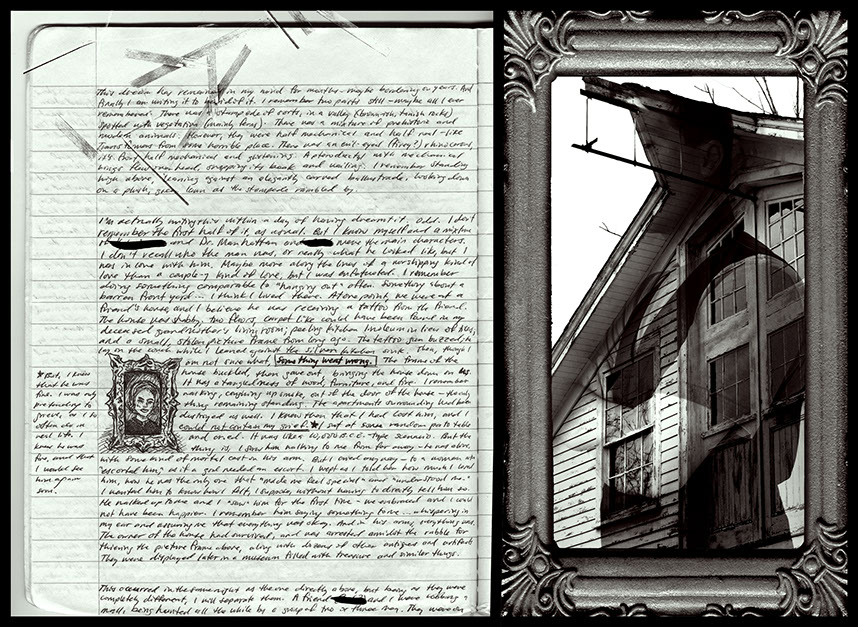 This dream has remained in my mind for months – maybe bordering on years. And
finally I am writing it to be rid of it. I remember two parts still – maybe all I ever
remembered. There was a stampede of sorts, in a valley (brownish, tanish rocks)
spotted with vegetation (mainly trees). There was a mixture of prehistoric and
modern animals. However, they were half mechanical and half real – like
Transformers from some horrible place. There was an evil-eyed (fiery?) rhinoceros,
its body half mechanical and glistening. A pterodactyl with mechanical
wings flew overhead, snapping its beak and wailing. I remember standing
high above, leaning against an elegantly carved ballustrade, looking down
on a plush, green lawn as the stampede rambled by.
I'm actually writing this within a day of having dreamt it. Odd. I don't
remember the first half of it, as usual. But I know myself and a mixture
of and Dr. Manhattan and were the main characters.
I don't recall who the man was, or really what he looked like, but I
was in love with him. Maybe more along the lines of a worshipping kind of
love than a couple-y kind of love, but I was enraptured. I remember
doing something comparable to "hanging out" often. Something about a
barren front yard – I think I lived there. At one point, we were at a
friend's house and I believe he was receiving a tattoo from the friend.
The house was shabby, two floors, carpet like could have been found in my
deceased grandmother's living room; peeling kitchen linoleum in lieu of tiles,
and a small, stolen picture frame from long ago. The tattoo gun buzzed, he
lay on the couch while I leaned against the silver kitchen sink. Then, though I
am not sure what, something went wrong. The frame of the
house buckled, then gave out, bringing the house down on us.
It was a tangled mess of wood, furniture, and fire. I remember
waking, coughing up smoke, out of the door of the house – the only
thing remaining standing. The apartments surrounding had been
destroyed as well. I knew then that I had lost him, and I
could not contain my grief.* I sat at some random patio table
and cried. It was like a 10,000 B.C.-type scenario. But the
thing is, I saw him nothing to me from far away – he was alive
with some kind of metal cast on his arm. But I owed money – to a woman who
"escorted him," as if a god needed an escort. I wept as I told him how much I loved
him, how he was the only one that "made me feel special" and "understood me."
I wanted him to know how I felt, I suppose, without having to directly tell him so.
He walked up to me and I "saw" him for the first time – we embraced and I could
not have been happier. I remember him saying something to me – whispering in
my ear and assuring me that everything was okay. And in his arms, everything was.
The owner of the house had survived, and was arrested amidst the rubble for
thieving the picture frame above, along with dozens of other antiques and artifacts.
They were displayed later in a museum filled with treasure and similar things.
* But, I knew
that he was
fine. I was only
pretending to
grieve, like I so
often do in
real life. I
knew he was
fine, and that
I would see
him again
soon.
This occurred in the same night as the one directly above, but being as they were
completely different, I will separate them. A friend and I were robbing a
mall, being hunted all the while by a group of two or three men. They were on